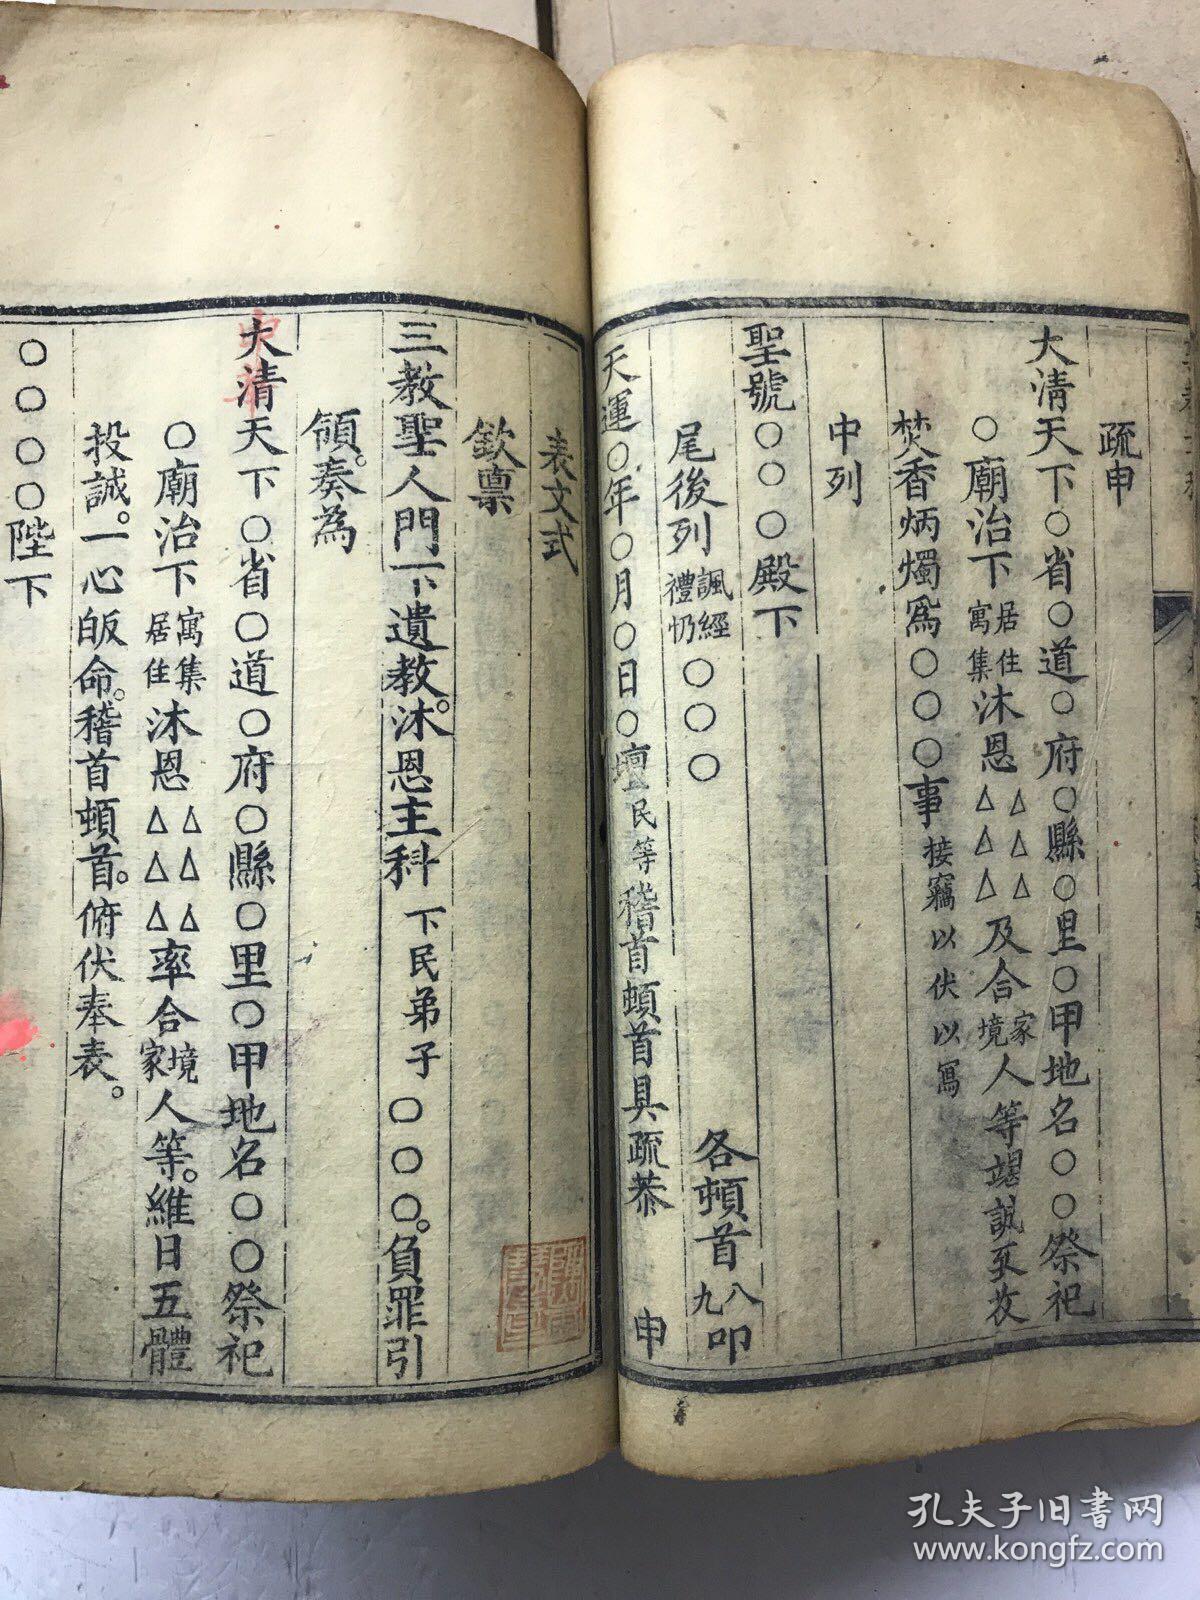 疏申
大淸天下○省○道○府○縣○里○甲地名○○祭祀
○廟治下居住寓集沐恩△△△△△△及合家境人等竭誠
焚香炳燭爲○○○事接竊以伏以寫
中列
聖號○○○殿下
尾後列諷經禮忉○○○ 各頓首八九叩
天運○年○月○日○壇民等稽首頓首具疏恭 申
表文式
欽稟
三教聖人門下遺教。沐恩主科下民弟子○○○。負罪引
領。奏為
大清天下○省○道○府○縣○里○甲地名○○祭祀
○廟治下寓集居住沐恩△△△△△△率合境家人等。維日五體
投誠。一心皈命。稽首頓首。俯伏奉表。
○○○○陛下
中華
孔夫子旧书网
www.kongfz.com